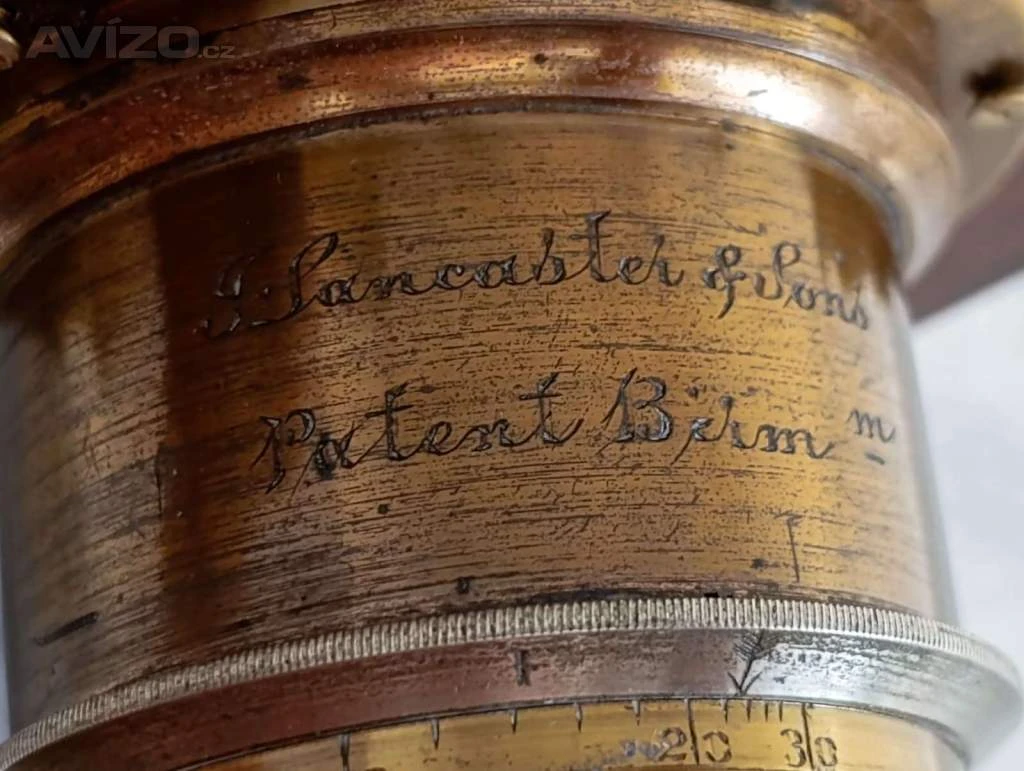 AVÍZO.cz
J. Lancaster & Sons
Patent Birm m
20 30